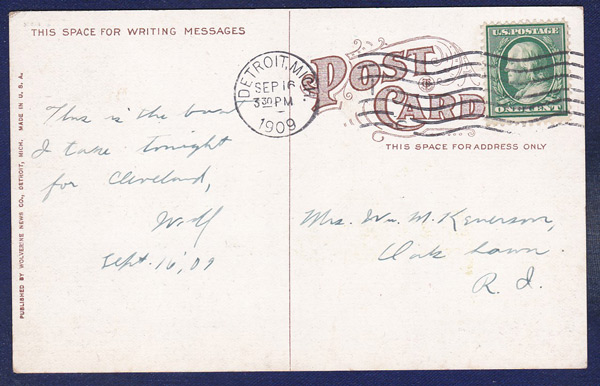 THIS SPACE FOR WRITING MESSAGES
DETROIT, MICH.
SEP 16
3 30 PM
1909
POST
CARD
U.S. POSTAGE
ONE CENT
THIS SPACE FOR ADDRESS ONLY
This is the boat
I take tonight
for Cleveland,
Will
Sept. 16, '09
Mrs. Wm. M. Kenerson,
Oak Lawn.
R. I.
PUBLISHED BY WOLVERINE NEWS CO., DETROIT, MICH. MADE IN U. S. A.